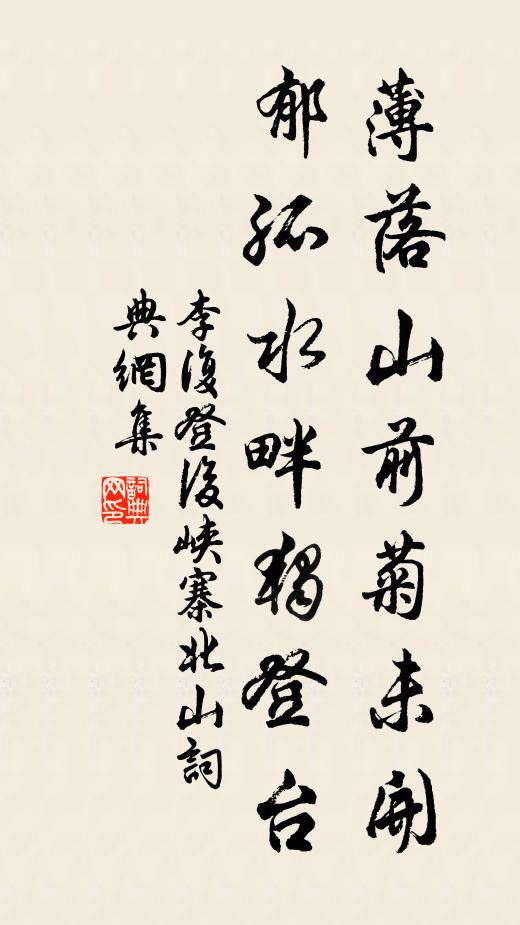 薄落山前菊未開
郁孤水畔獨登台
李復登後峽寨北山詞
典網集
詞典
网印